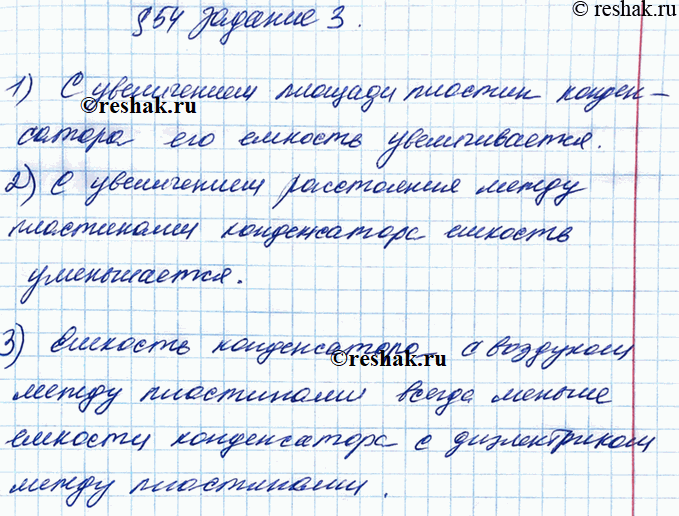 ©reshak.ru
§54 Задание 3.
1) С увеличением площади пластин конден-
©reshak.ru
сатора его емкость увеличивается.
2) С увеличением расстояния между
пластинами конденсатора емкость
уменьшается.
3) Емкость конденсатора с воздухом
©reshak.ru
между пластинами всегда меньше
емкости конденсатора с диэлектриком
между пластинами.